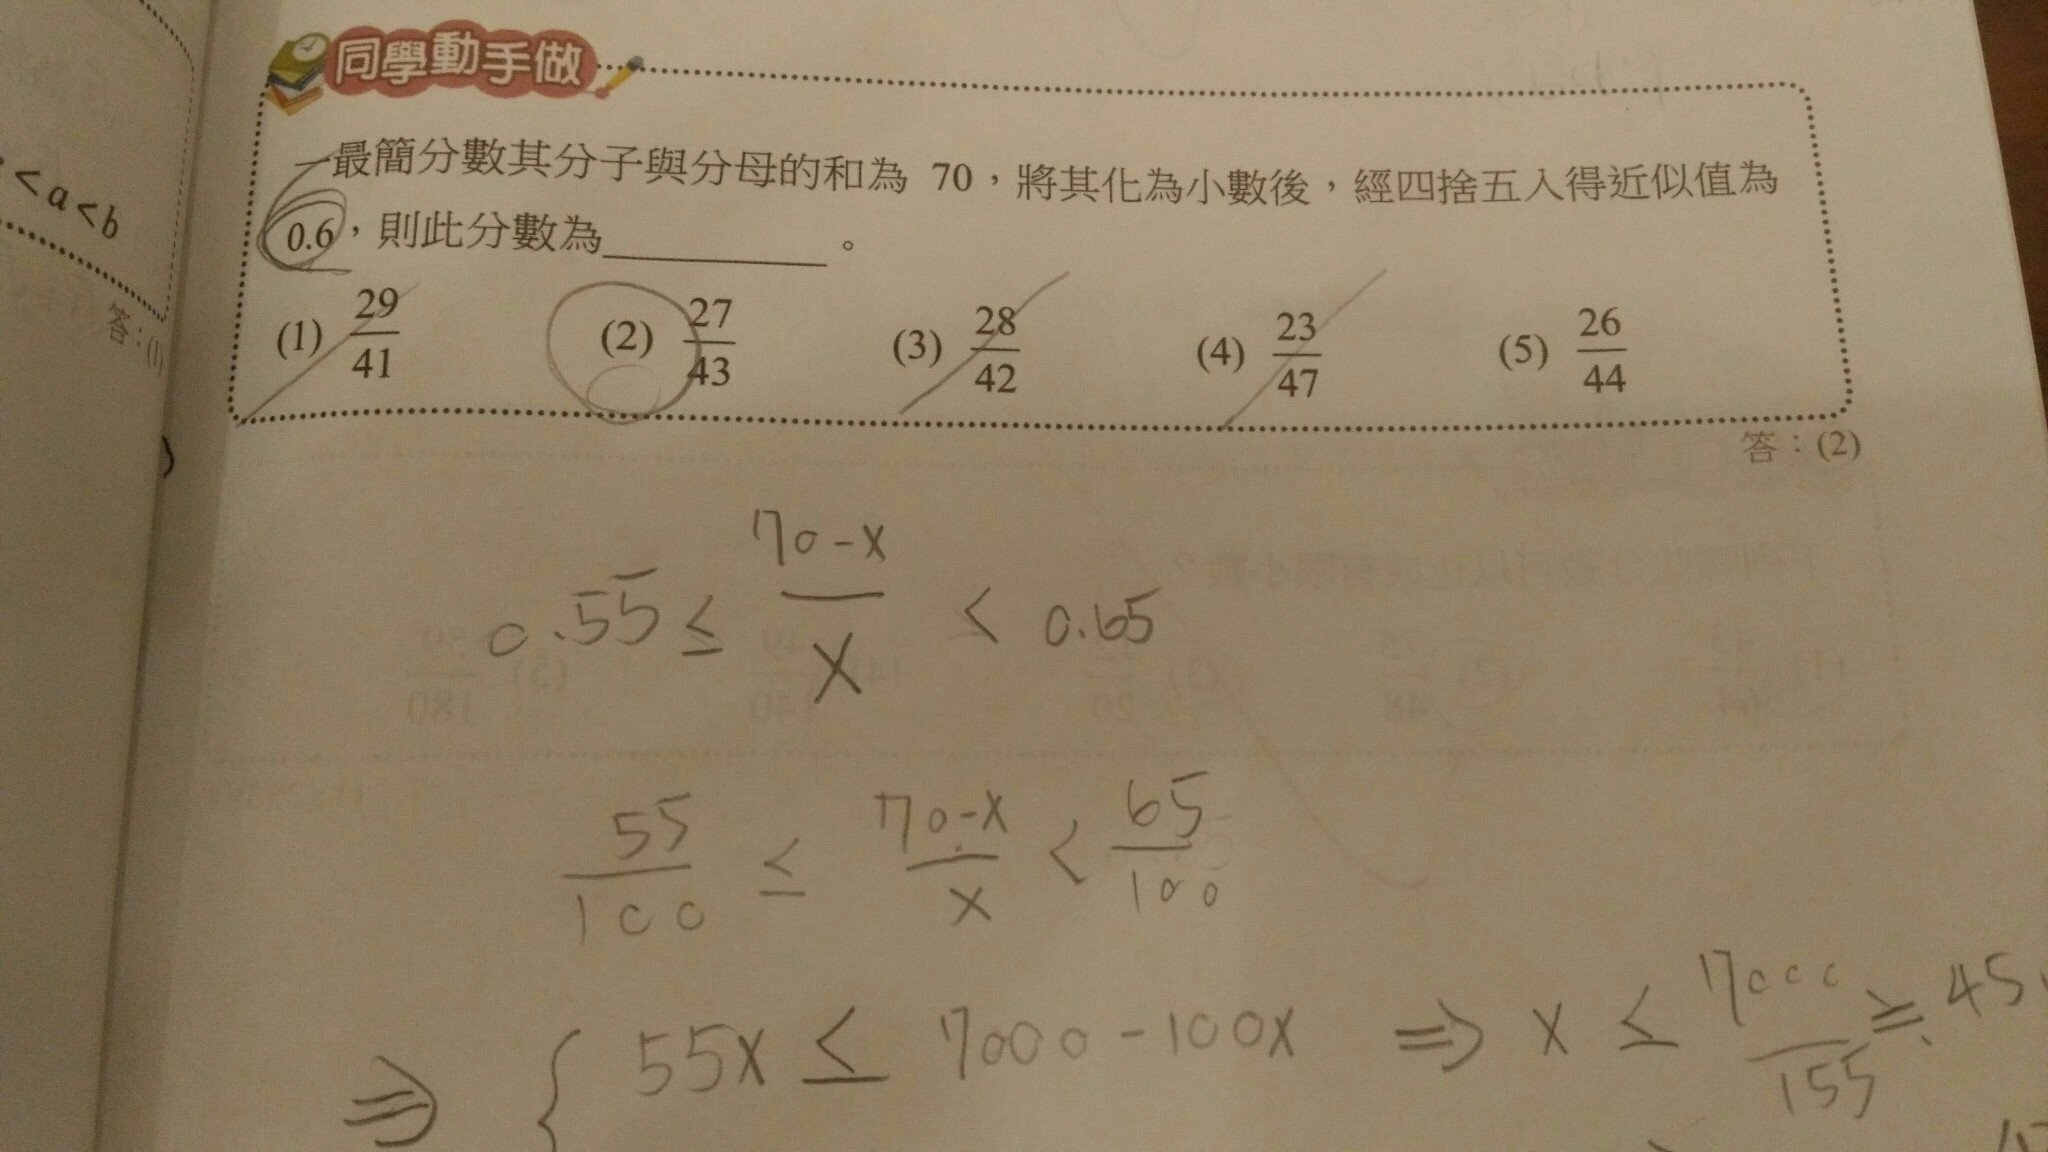 同學動手做
一最簡分數其分子與分母的和為 70，將其化為小數後，經四捨五入得近似值為
0.6，則此分數為________。
(1) 29/41 (2) 27/43 (3) 28/42 (4) 23/47 (5) 26/44
答：(2)
< a < b
答：(1)
0.55 ≤ (70-x)/x < 0.65
55/100 ≤ (70-x)/x < 65/100
⇒ { 55x ≤ 7000-100x ⇒ x ≤ 7000/155 ≒ 45.